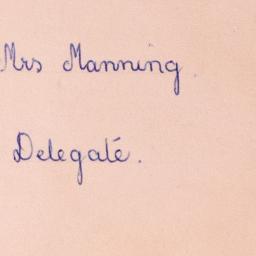 Mrs Manning
Delegate.